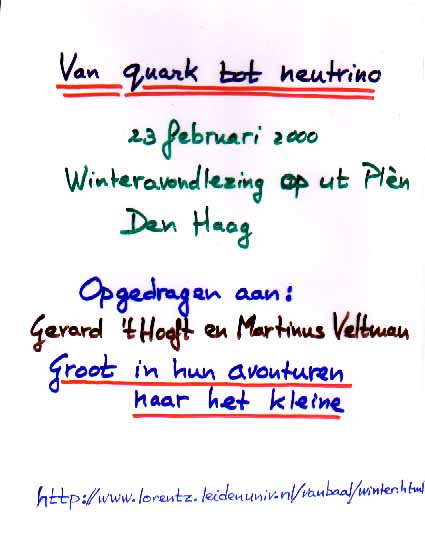 Van quark tot neutrino
23 februari 2000
Winteravondlezing op ut Plèn
Den Haag
Opgedragen aan:
Gerard 't Hooft en Martinus Veltman
Groot in hun avonturen
naar het kleine
http://www.lorentz.leidenuniv.nl/vanbaal/winter.html